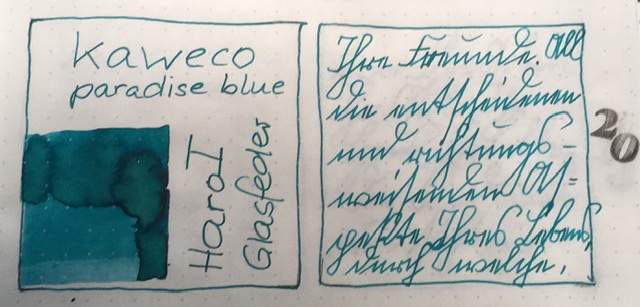 Kaweco
paradise blue
HaroI
Glasfeder
Ihre Freunde. All
die entscheidenen
und richtungs-
weisenden As=
pekte Ihres Lebens,
durch welche,
20